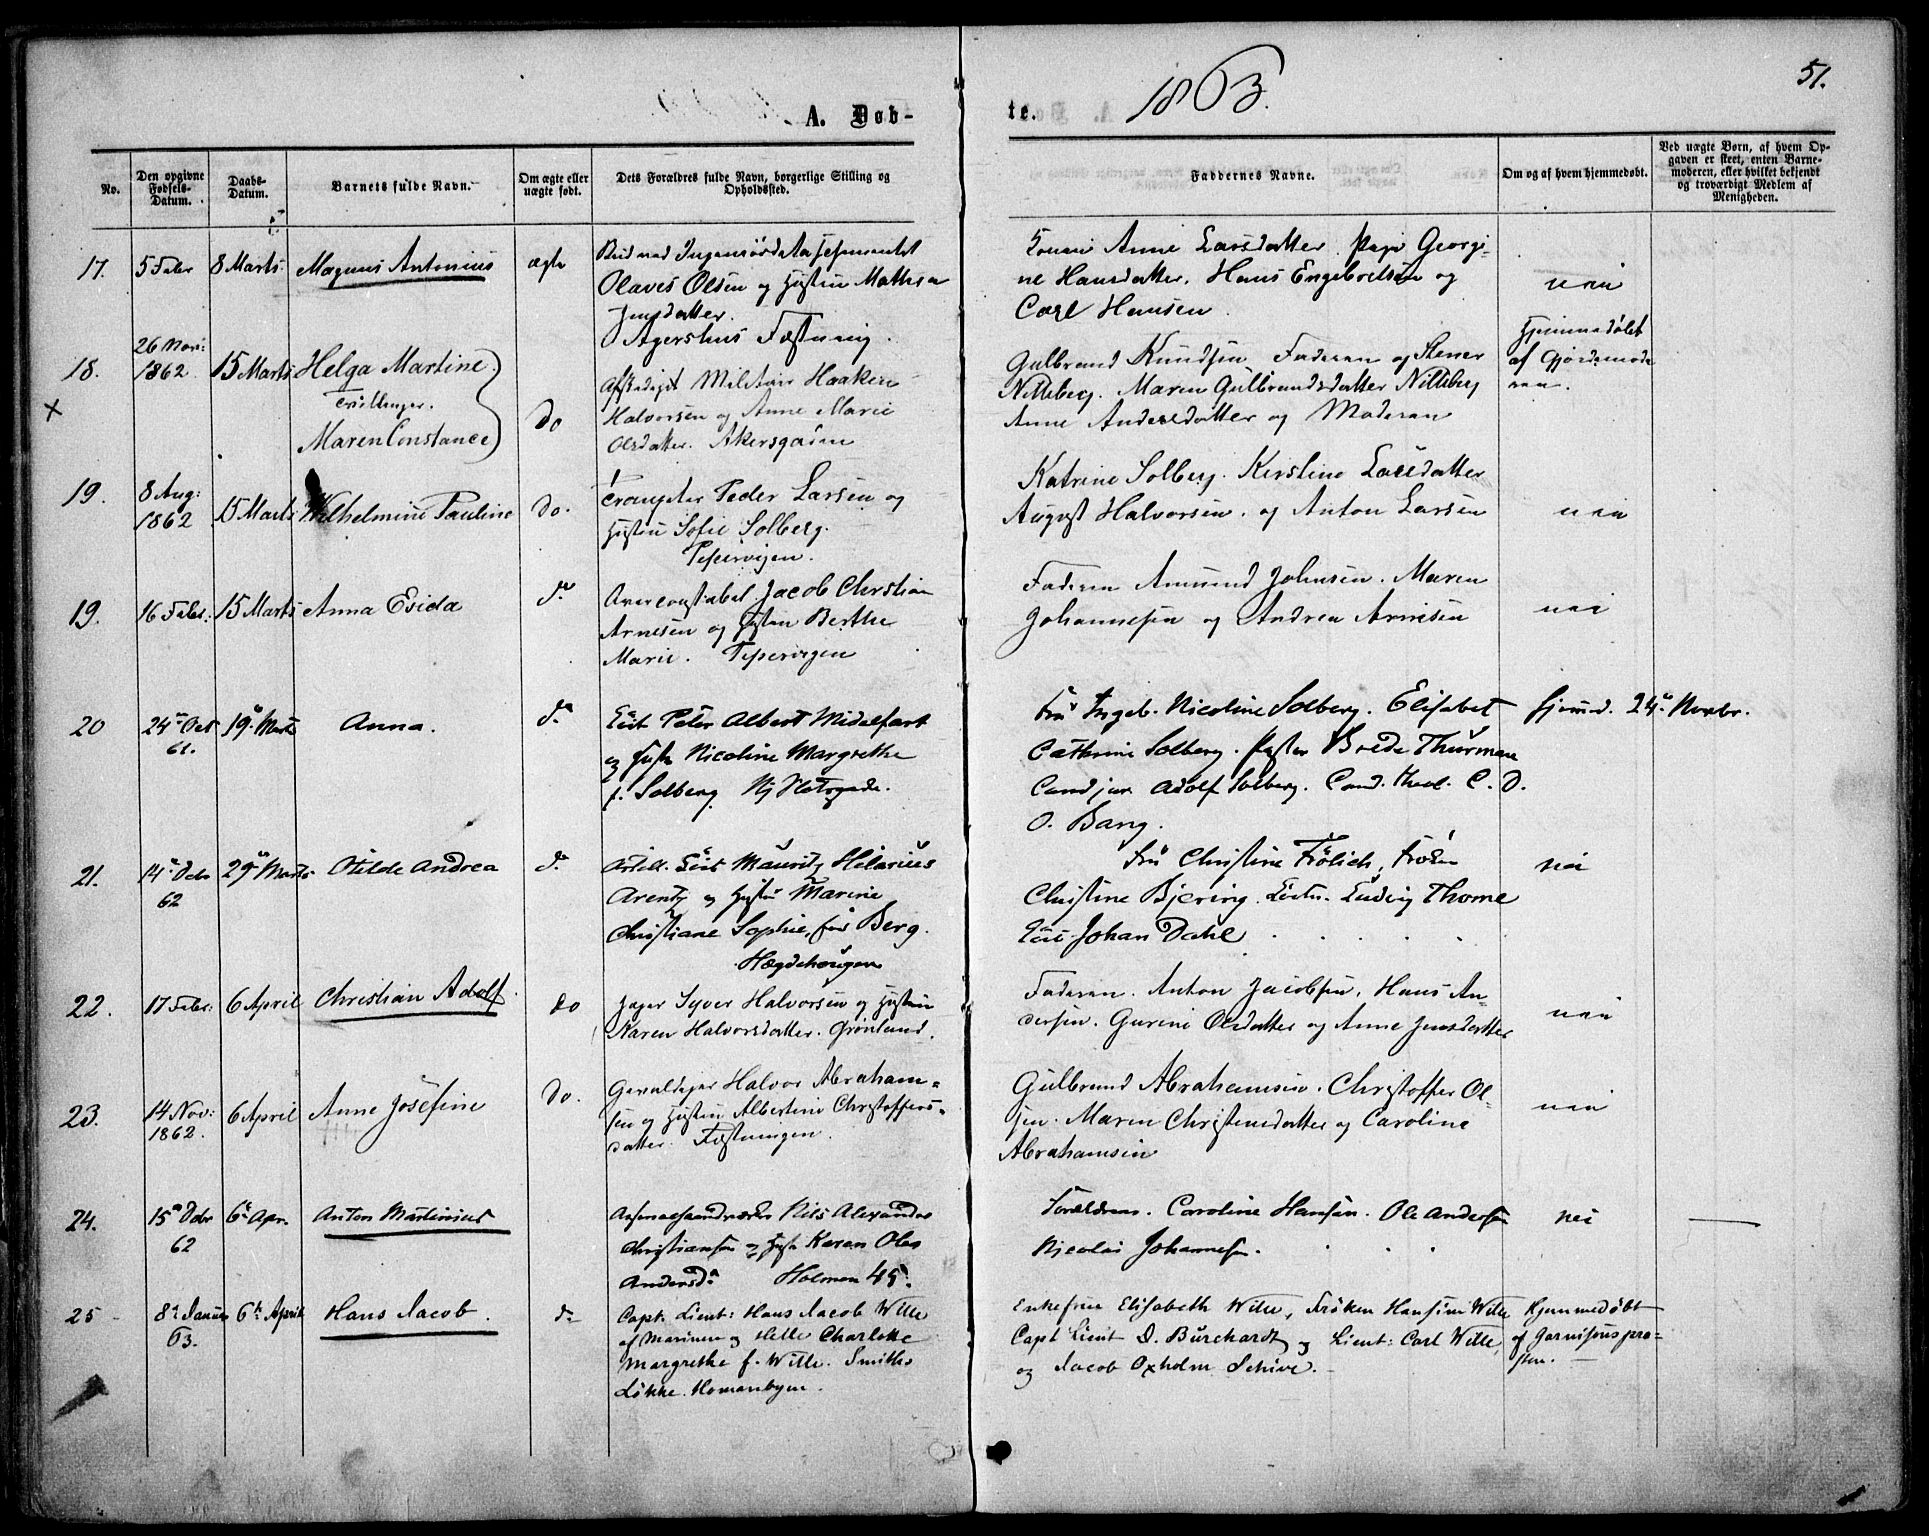 A. Døb-
te. 1863.
51.
No.
Den opgivne Fødsels-Datum.
Daabs-Datum.
Barnets fulde Navn.
Om ægte eller uægte født.
Dets Forældres fulde Navn, borgerlige Stilling og Opholdssted.
Faddernes Navne.
Om og af hvem hjemmedøbt.
Ved uægte Børn, af hvem Opgaven er skeet, enten Barnemoderen, eller hvilket bekjendt og troværdigt Medlem af Menigheden.
17. 5 Febr 8 Marts. Magnus Antonius ægte
Olaves Olsen og Hustru Mathea
Jensdatter.
Agershus Fæstning.
Konen Anne Larsdatter. Pige Georgi-
ne Hansdatter. Hans Engebretsen og
Carl Hansen.
nei
18. 26 Nov: 1862 15 Marts Helga Martine.
Tvillinger.
Maren Constance
Do
Afskediget Militair Haaken
Halvorsen og Anne Marie
Olsdatter. Akersgaden
Gulbrand Knudsen Faderen og Stener
Nitteberg. Maren Gulbrandsdatter Nitteberg
Anne Andersdatter og Moderen
Hjemmedøbt
af Gjordemode
ren.
19. 8 Aug: 1862 15 Marts Wilhelmine Pauline Do.
Trompeter Peder Larsen og
Hustru Sofie Solberg.
Pipervigen.
Katrine Solberg. Kirstine Larsdatter
August Halvorsen. og Anton Larsen
nei
19. 16 Febr: 15 Marts Anna Esida do
Jacob Christian
Arnesen og Hustru Berthe
Marie. Pipervigen
Faderen Amund Johnsen. Maren
Johannesen og Andrea Arnesen
nei
20 24de Oct 61. 19de Marts Anna. do
Lieut Peter Albert Midelfart
og Hustr Nicoline Margrethe
f. Solberg
Fru Ingeb. Nicoline Solberg. Elisabet
Cathrine Solberg. Brede Thurman
Cand jur Adolf Solberg. Cand. theol. C. D.
O. Bang.
hjemmd. 24de Novbr.
21. 14de Decbr 62 29de Marts Otilde Andrea do
Artill. Lieut Mauritz Hilarius
Arentz og Hustru Marine
Christiane Sophie, født Berg.
Hægdehougen
Fru Christine Frölich, Frøken
Christine Bjering. Lieutn. Ludvig Thorne
Lieut Johan Dahl
nei
22. 17 Febr: 6 April Christian Adolf. Do
Jæger Syver Halvorsen og Hustru
Karen Halvorsdatter. Grønland.
Faderen. Anton Jacobsen. Hans An-
dersen. Gurine Olsdatter og Anne Jensdatter
nei
23. 14 Nov: 1862. 6 April Anne Josefine Do.
Gevaldiger Halvor Abraham-
sen og Hustru Albertine Christoffers-
datter. Fæstningen.
Gulbrand Abrahamsen. Christoffer Ol-
sen. Maren Christensdatter og Caroline
Abrahamsen
nei
24. 15de Decbr 62 6te Apr. Anton Martinius
Nils Alexander
Christiansen og Hustr Karen Olea
Andersd. Holmen 45.
Forældrene. Caroline Hansen. Ole Andersen
Nicolai Johannesen.
nei
25 8de Januar 63. 6te April Hans Jacob. do
Capt. Lieut: Hans Jacob Wille
af Marinen og Helle Charlotte
Margrethe f. Wille. Smiths
Løkke. Homansbyen.
Enkefrue Elisabeth Wille, Frøken Hansine Wille
Capt Lieut D. Burchardt og Lieut: Carl Wille,
og Jacob Oxholm Schive.
Hjemmedøbt
af Garnisonspræ-
sten.